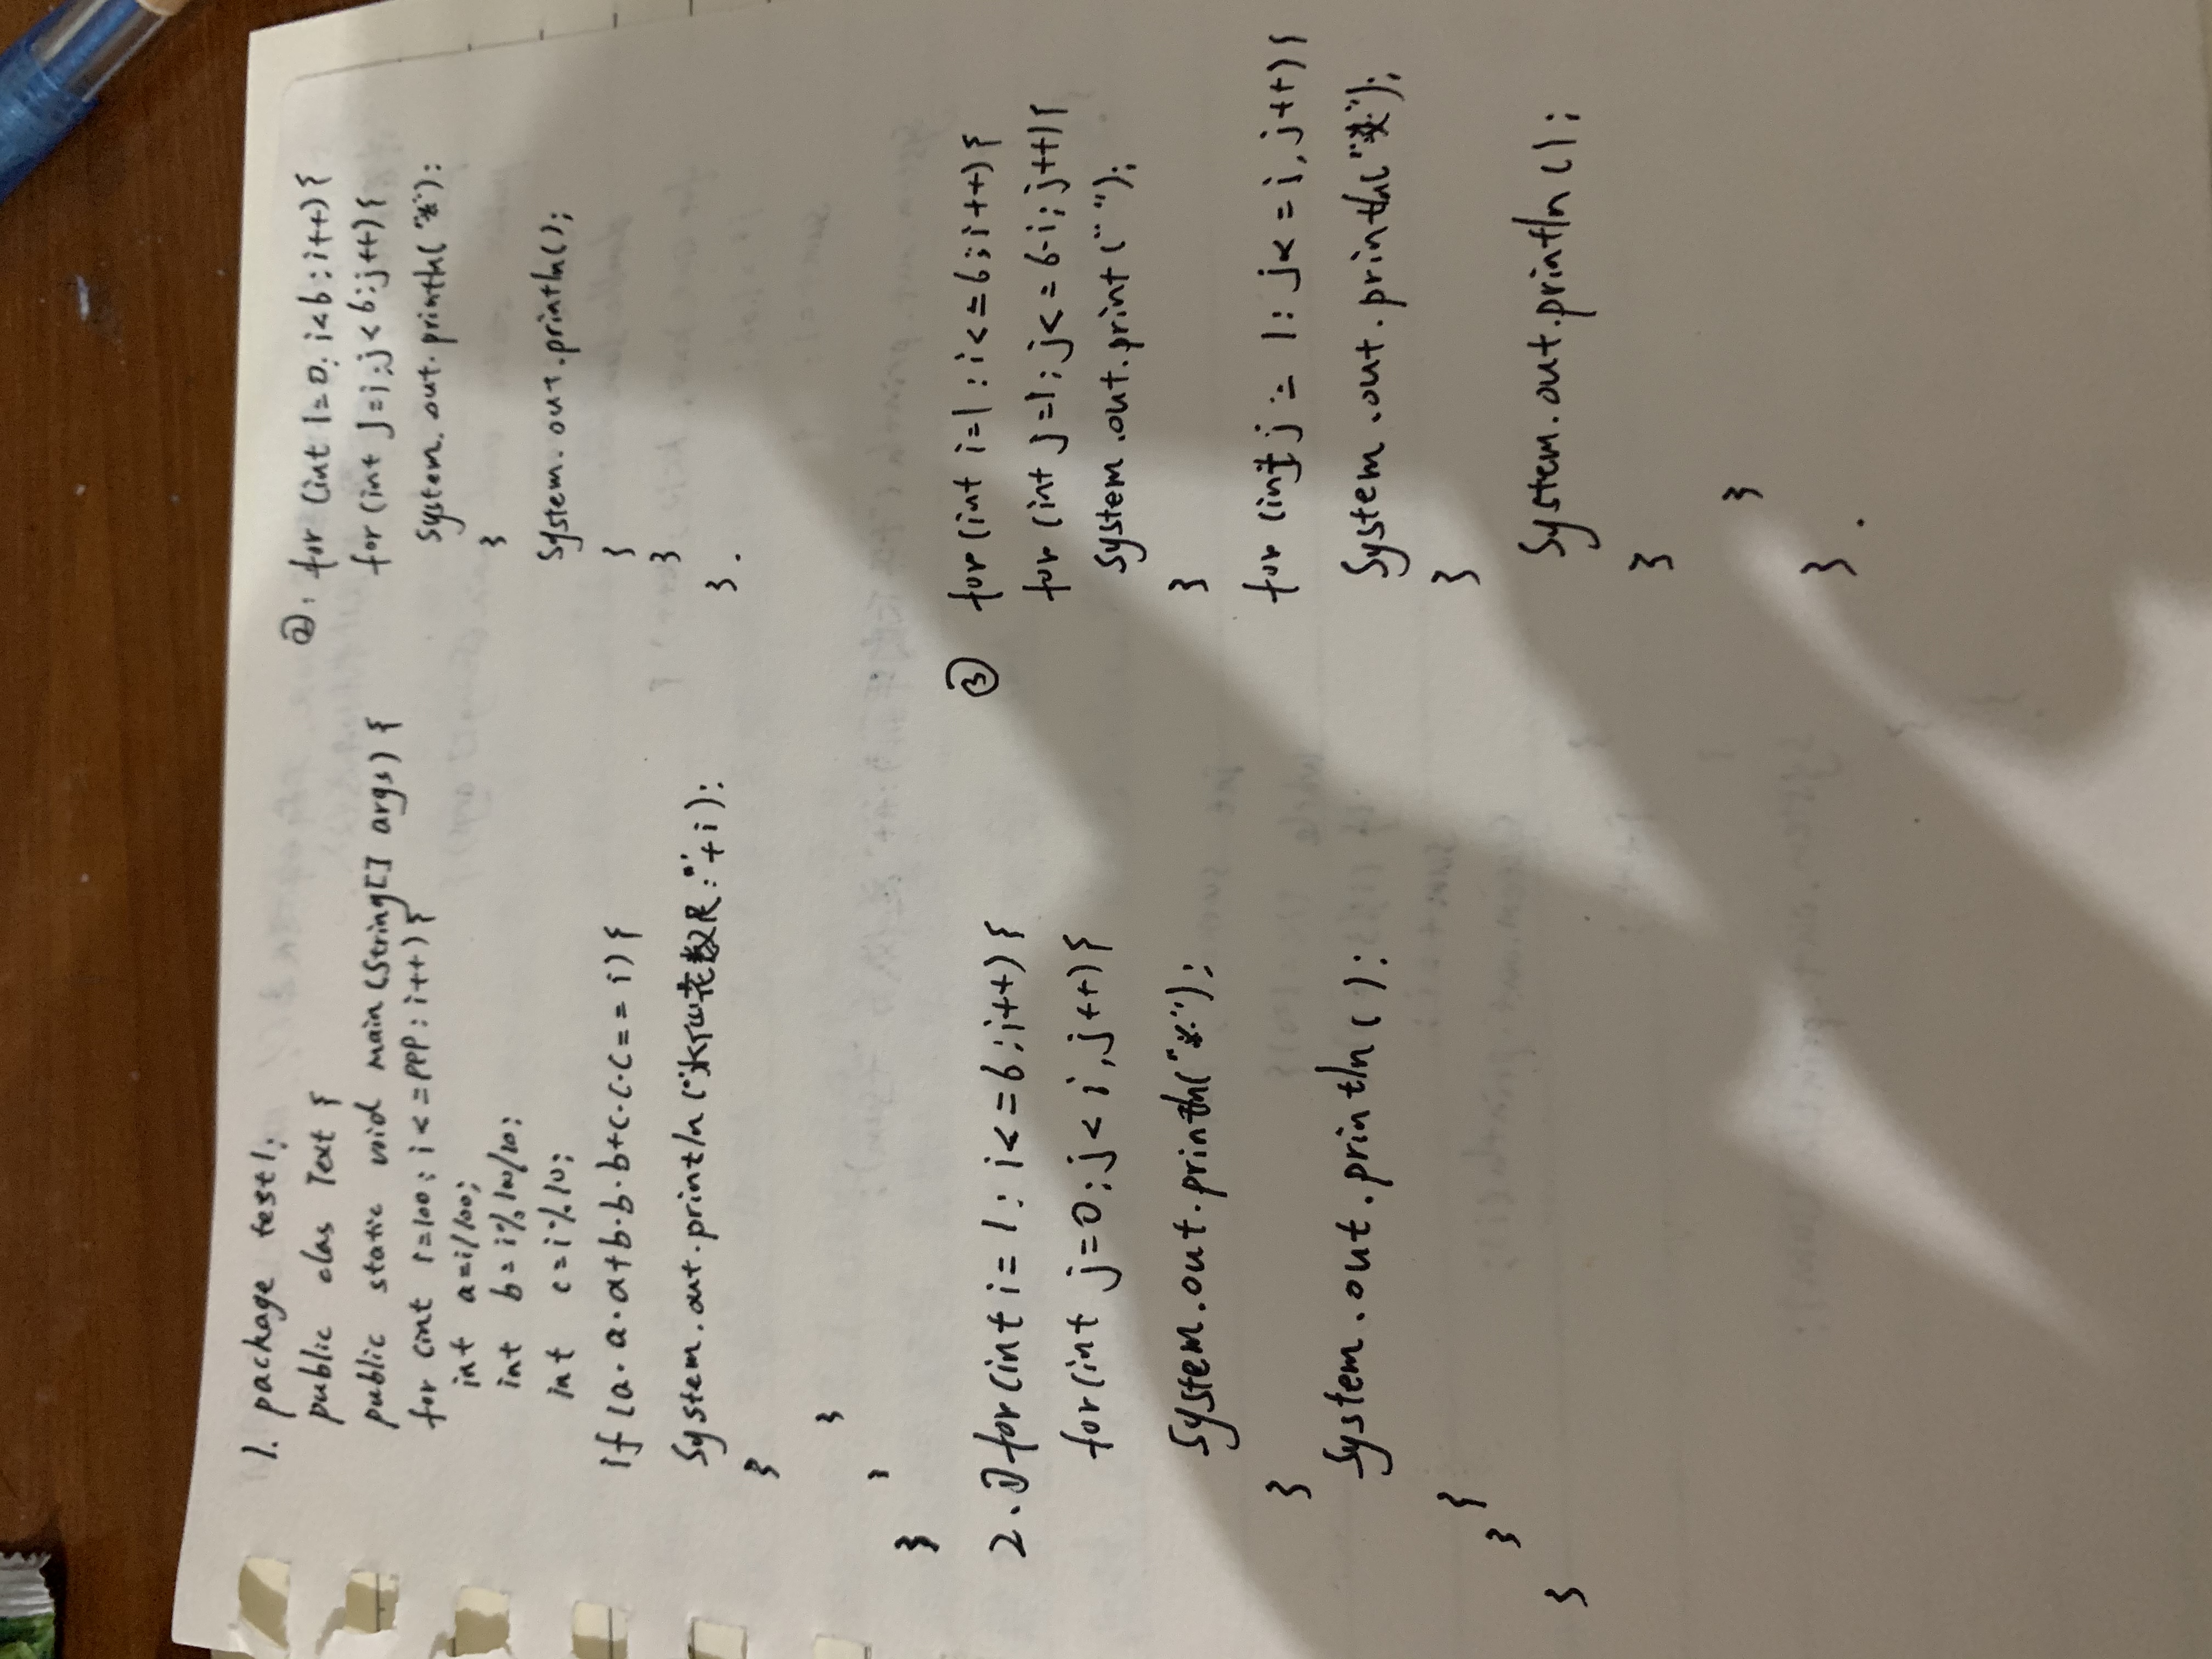 1. package test1;
public clas Text {
public static void main (String[] args) {
for (int i=100; i<=PPP; i++) {
int a=i/100;
int b=i%100/10;
int c=i%10;
if (a·a·a+b·b·b+c·c·c==i) {
System.out.println("水仙花数R:"+i);
}
}
}
}
2.① for (int i=1; i<=6; i++) {
for (int j=0; j<i, j++) {
System.out.print("*");
}
System.out.println();
}
}
}
②. for (int i=0; i<6; i++) {
for (int j=i; j<6; j++) {
System.out.print("*");
}
System.out.println();
}
}
}.
③ for (int i=1; i<=6; i++) {
for (int j=1; j<=6-i; j++) {
System.out.print(" ");
}
for (int j=1; j<=i, j++) {
System.out.print("*");
}
System.out.println();
}
}
}.